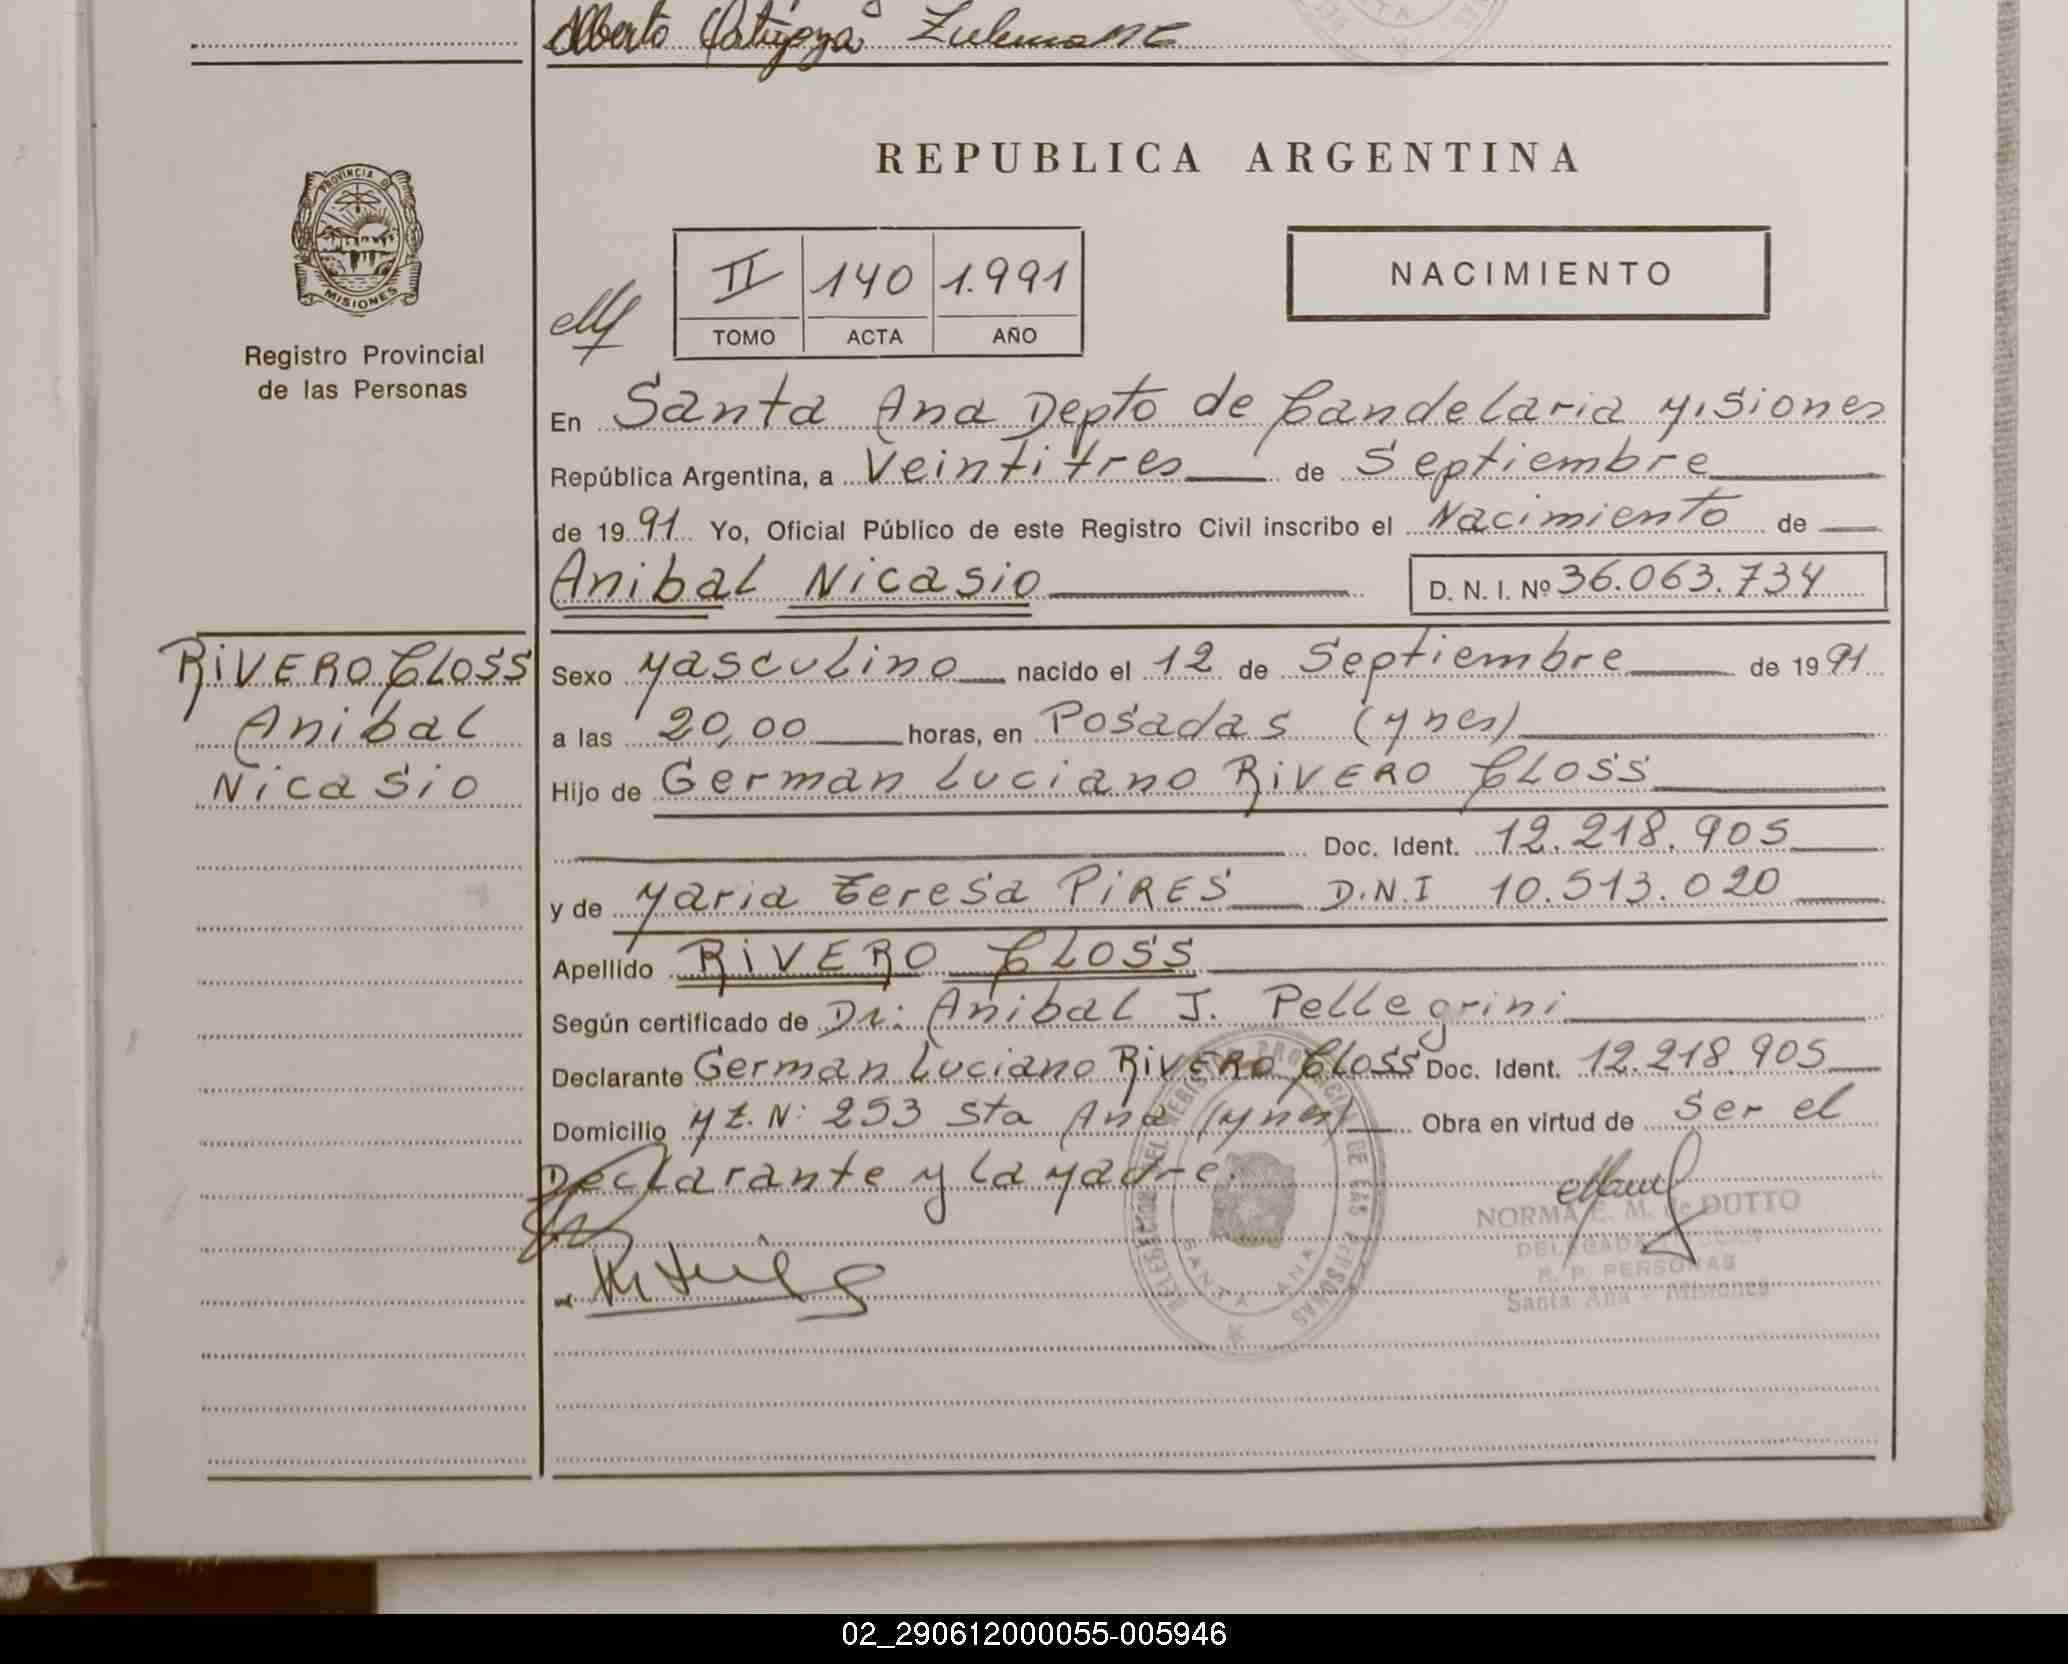 Alberto
REPUBLICA ARGENTINA
PROVINCIA DE
MISIONES
Registro Provincial
de las Personas
II 140 1.991
TOMO ACTA AÑO
NACIMIENTO
En Santa Ana Depto de Candelaria Misiones
República Argentina, a Veintitres de Septiembre
de 1991 Yo, Oficial Público de este Registro Civil inscribo el Nacimiento de
Anibal Nicasio D. N. I. Nº 36.063.734
RIVERO CLOSS
Anibal
Nicasio
Sexo Masculino nacido el 12 de Septiembre de 1991
a las 20,00 horas, en Posadas (Mnes)
Hijo de German Luciano RIVERO CLOSS
Doc. Ident. 12.218.905
y de Maria Teresa PIRES D.N.I 10.513.020
Apellido RIVERO CLOSS
Según certificado de Dr: Anibal J. Pellegrini
Declarante German Luciano RIVERO CLOSS Doc. Ident. 12.218.905
Domicilio Mz. N: 253 Sta Ana (Mnes) Obra en virtud de Ser el
Declarante y la Madre.
DELEGACION DEL REGISTRO PROVINCIAL DE LAS PERSONAS
SANTA ANA
NORMA E. M. de DUTTO
DELEGADA
R. P. PERSONAS
Santa Ana - Misiones
02_290612000055-005946